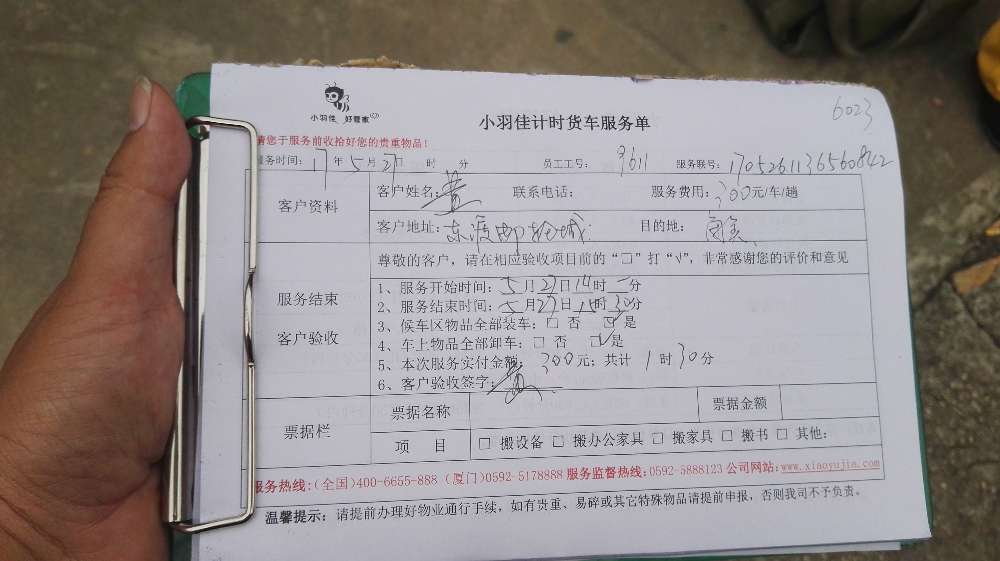 小羽佳 好管家
小羽佳计时货车服务单
6023
请您于服务前收拾好您的贵重物品!
服务时间: 17年 5月 27日 时 分 员工工号: 3611 服务联号: 1705261136560842
客户资料
客户姓名: 黄 联系电话: 服务费用: 300元/车/趟
客户地址: 东渡邮轮城 目的地:
尊敬的客户,请在相应验收项目前的“□”打“√”,非常感谢您的评价和意见
服务结束
客户验收
1、服务开始时间: 5月27日14时 分
2、服务结束时间: 5月27日15时30分
3、候车区物品全部装车: □ 否 ☑ 是
4、车上物品全部卸车: □ 否 ☑ 是
5、本次服务实付金额: 300元; 共计 1 时 30 分
6、客户验收签字: 黄
票据栏
票据名称 票据金额
项 目 □ 搬设备 □ 搬办公家具 □ 搬家具 □ 搬书 □ 其他:
服务热线:(全国)400-6655-888 (厦门)0592-5178888 服务监督热线:0592-5888123 公司网站:www.xiaoyujia.com
温馨提示: 请提前办理好物业通行手续, 如有贵重、易碎或其它特殊物品请提前申报, 否则我司不予负责。